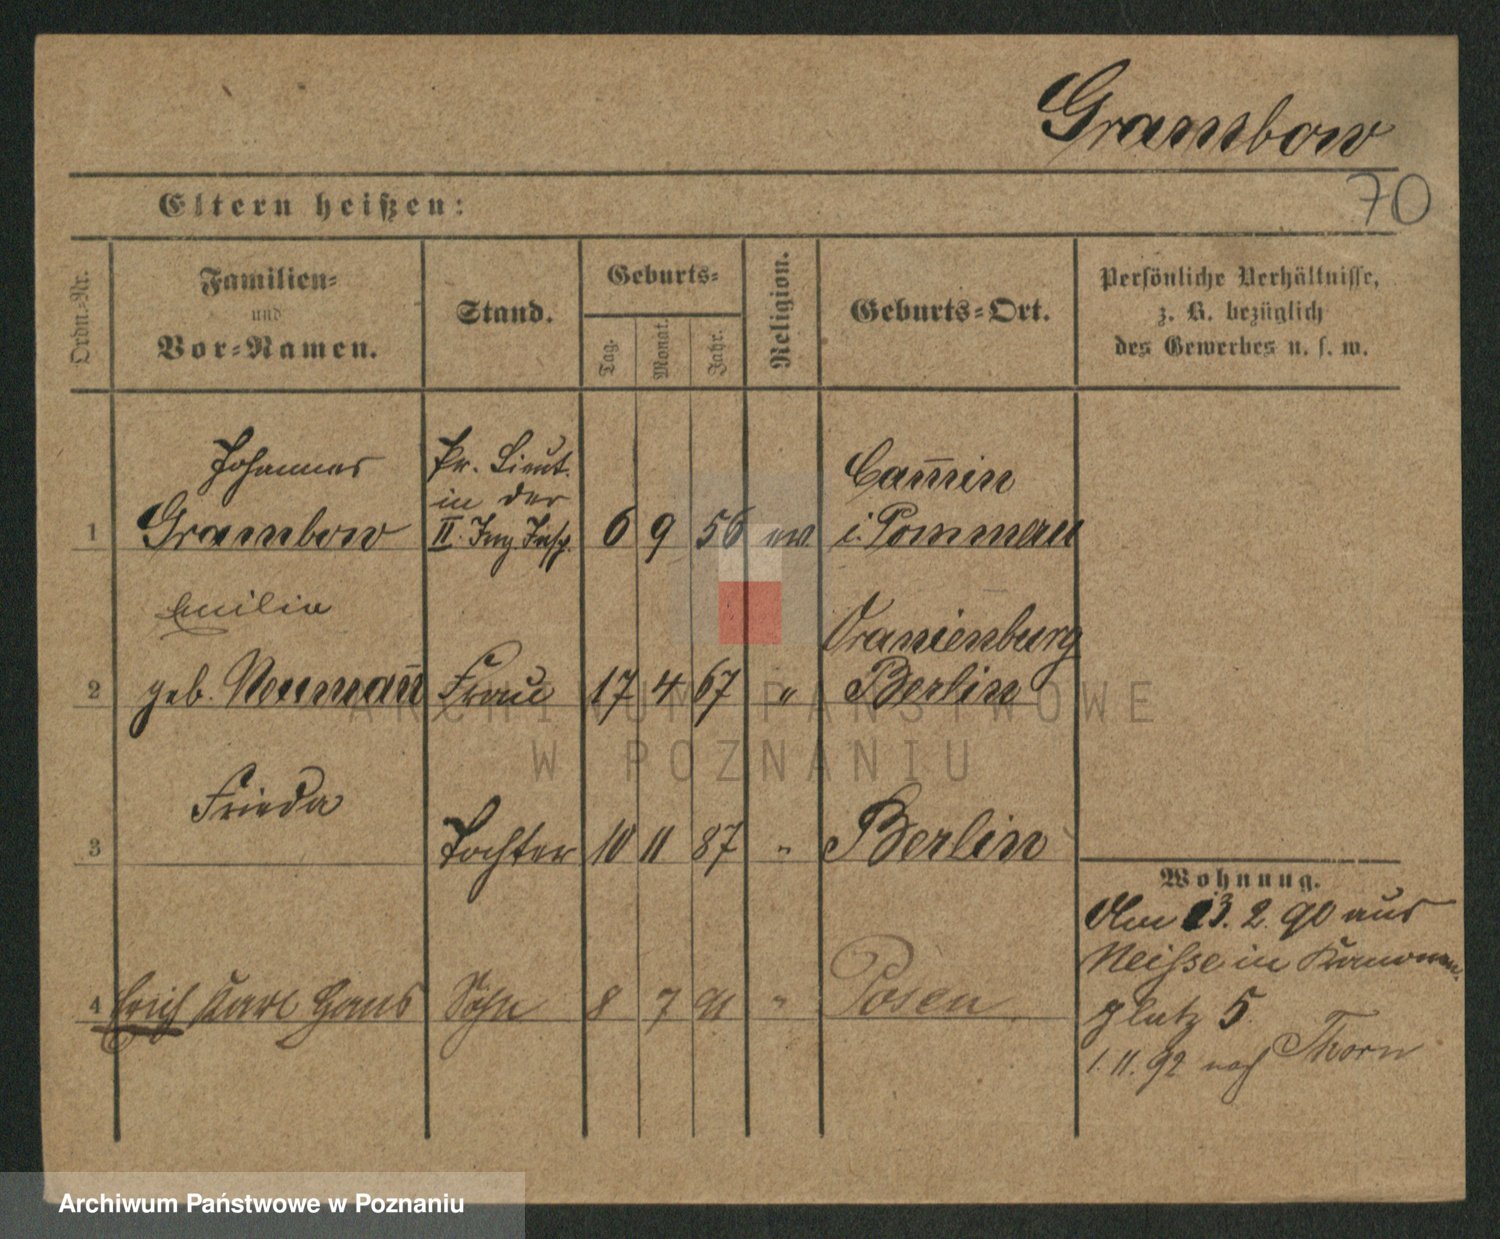 Grambow
70
Eltern heißen:
Ordn.-Nr.
Familien-
und
Vor-Namen.
Stand.
Geburts-
Tag.
Monat.
Jahr.
Religion.
Geburts-Ort.
Persönliche Verhältnisse,
z. B. bezüglich
des Gewerbes u. s. w.
Johannes
Pr. Lieut.
in der
Cam̅in
1 Grambow II. Ing. Insp. 6 9 56 ev. i. Pommern
Emilie
Oranienburg
2 geb. Neuman̅ Frau 17 4 67 " Berlin
Frieda
3 Tochter 10 11 87 " Berlin
4 Erich Karl Hans Sohn 8 7 91 " Posen
Wohnung.
Am 13. 2. 90 aus
Neisse in Kanonen
platz 5.
1. 11. 92 nach Thorn
ARCHIWUM PAŃSTWOWE
W POZNANIU
Archiwum Państwowe w Poznaniu